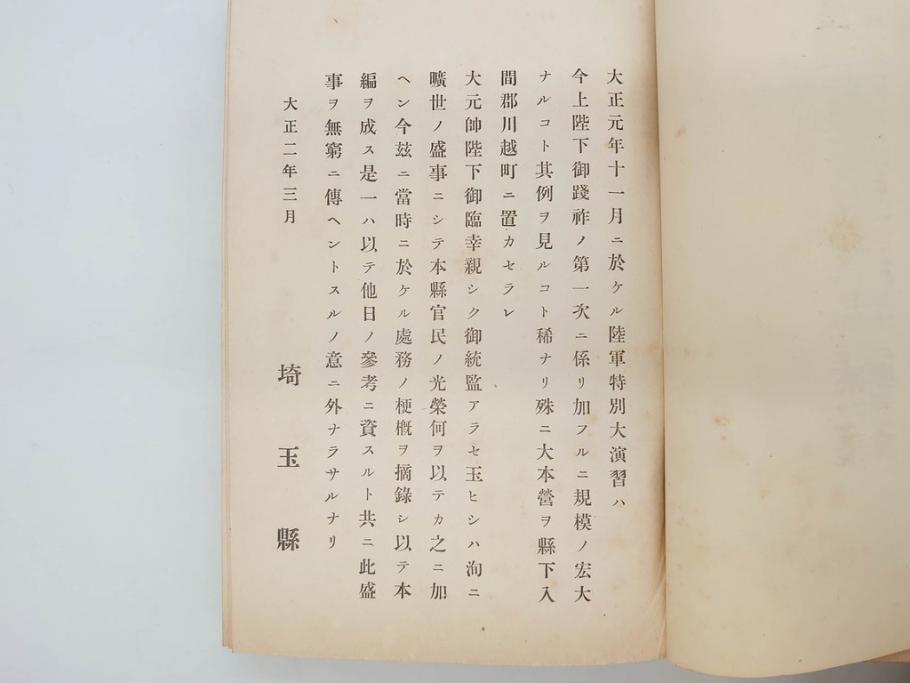 大正元年十一月ニ於ケル陸軍特別大演習ハ
今上陛下御踐祚ノ第一次ニ係リ加フルニ規模ノ宏大
ナルコト其例ヲ見ルコト稀ナリ殊ニ大本營ヲ縣下入
間郡川越町ニ置カセラレ
大元帥陛下御臨幸親シク御統監アラセ玉ヒシハ洵ニ
曠世ノ盛事ニシテ本縣官民ノ光榮何ヲ以テカ之ニ加
ヘン今玆ニ當時ニ於ケル處務ノ梗概ヲ摘錄シ以テ本
編ヲ成ス是一ハ以テ他日ノ參考ニ資スルト共ニ此盛
事ヲ無窮ニ傳ヘントスルノ意ニ外ナラサルナリ
大正二年三月
埼玉縣